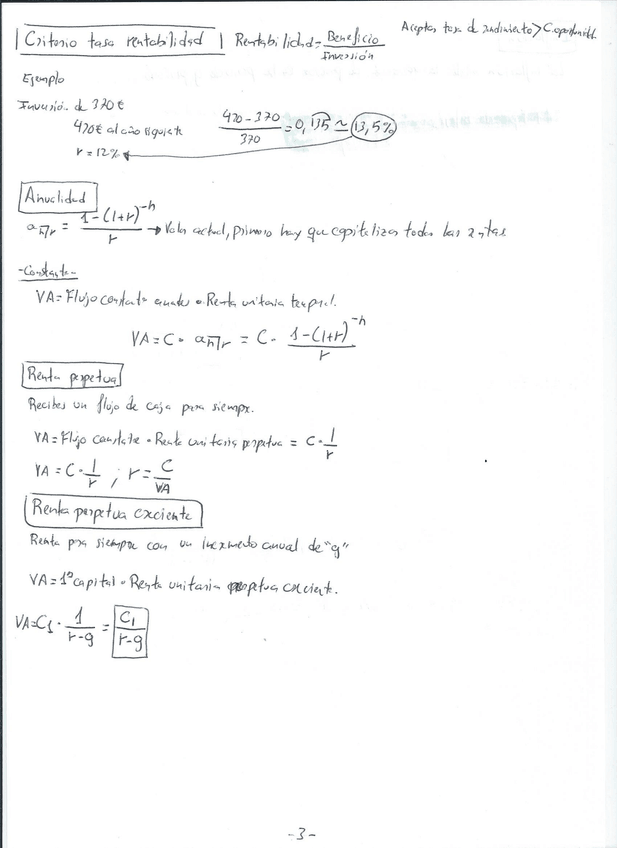 Criterio tasa rentabilidad Rentabilidad = Beneficio / Inversión Aceptas tasa de rendimiento > C.oportunidad.
Ejemplo
Inversión de 370€
420€ al año siguiente (420-370)/370 = 0,135 ≃ 13,5%
r = 12%
Anualidad
a n r = (1-(1+r)^-n)/r → Valor actual, primero hay que capitalizar todas las rentas
-Constante-
VA = Flujo constante · Renta unitaria temporal.
VA = C · a n r = C · (1-(1+r)^-n)/r
Renta perpetua
Recibes un flujo de caja para siempre.
VA = Flujo constante · Renta unitaria perpetua = C · 1/r
VA = C · 1/r ; r = C/VA
Renta perpetua creciente
Renta para siempre con un incremento anual de "g"
VA = 1º capital · Renta unitaria perpetua creciente.
VA = C1 · 1/(r-g) = C1/(r-g)
-3-